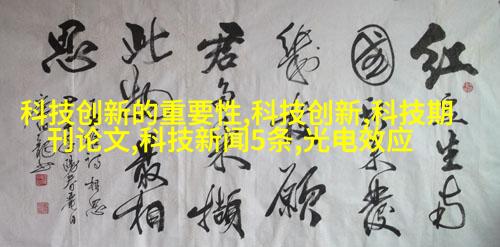 科技创新的重要性,科技创新,科技期
刊论文,科技新闻5条,光电效应
红豆生南
國春来發
幾枝愿
君多采擷
此物最相
思